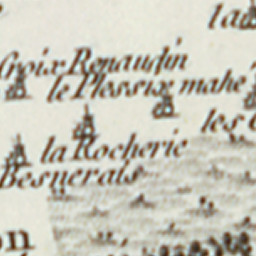 la
Croix Renaudin
le Plessix mahé
les
la Rocherie
Besnerais
on